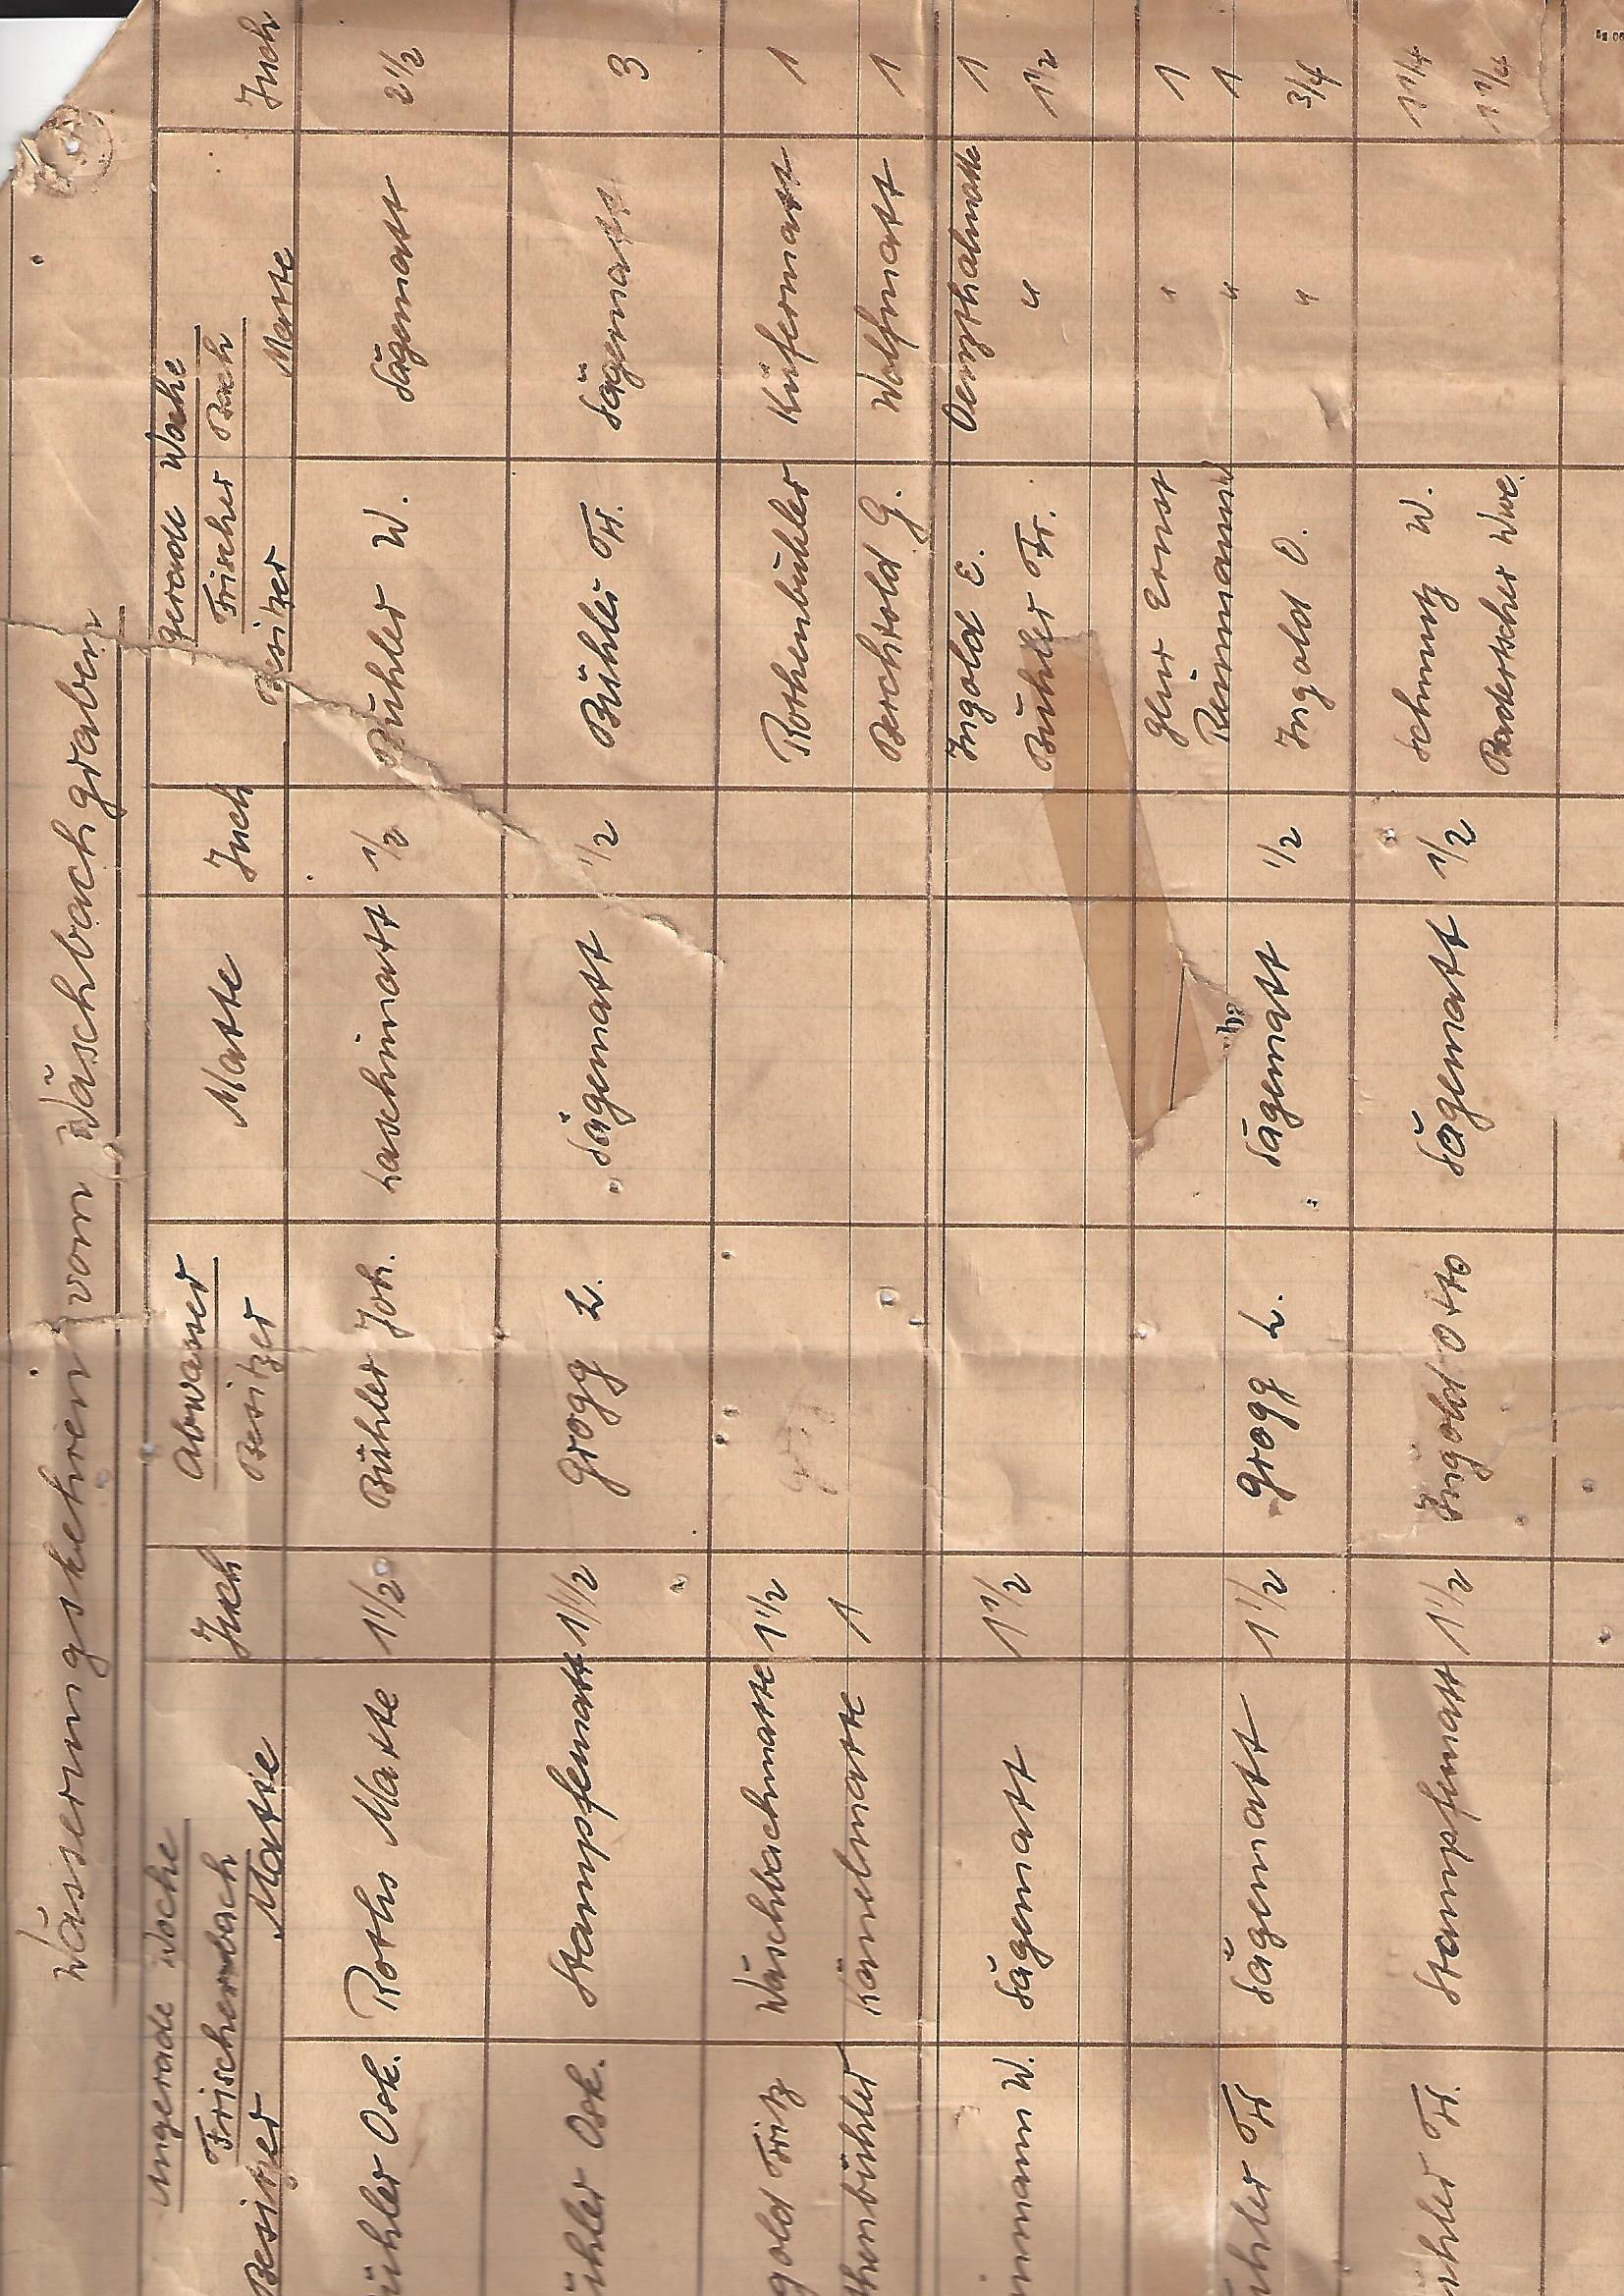 Wässerungskehren vom Wäschbachgraben
ungerade Woche Abwasser gerade Woche
Frischerbach Frischer Bach
Besitzer Matte Juch Besitzer Matte Juch Besitzer Matte Juch
ühler Osk. Roths Matte 1 1/2 Bühler Joh. Laschimatt 1/2 Bühler W. Sägematt 2 1/2
ühler Osk. Stampfematt 1 1/2 Grogg L. Sägematt 1/2 Bühler Fr. Sägematt 3
gold Fritz Wäschbachmatte 1 1/2 Rothenbühler Küfermatt 1
thenbühler Känelmatte 1 Berchtold G. Wolfmatt 1
Ingold E. Oenzthalmatte 1
nmann W. Sägematt 1 1/2 Bühler Fr. " 1 1/2
Glur Ernst " 1
Reinmann " 1
hler Fr Sägematt 1 1/2 Grogg L. Sägematt 1/2 Ingold O. " 3/4
hler Fr. Stampfematt 1 1/2 Ingold Otto Sägematt 1/2 Schmutz W. 1 1/4
Badertscher Wwe. 1 1/4